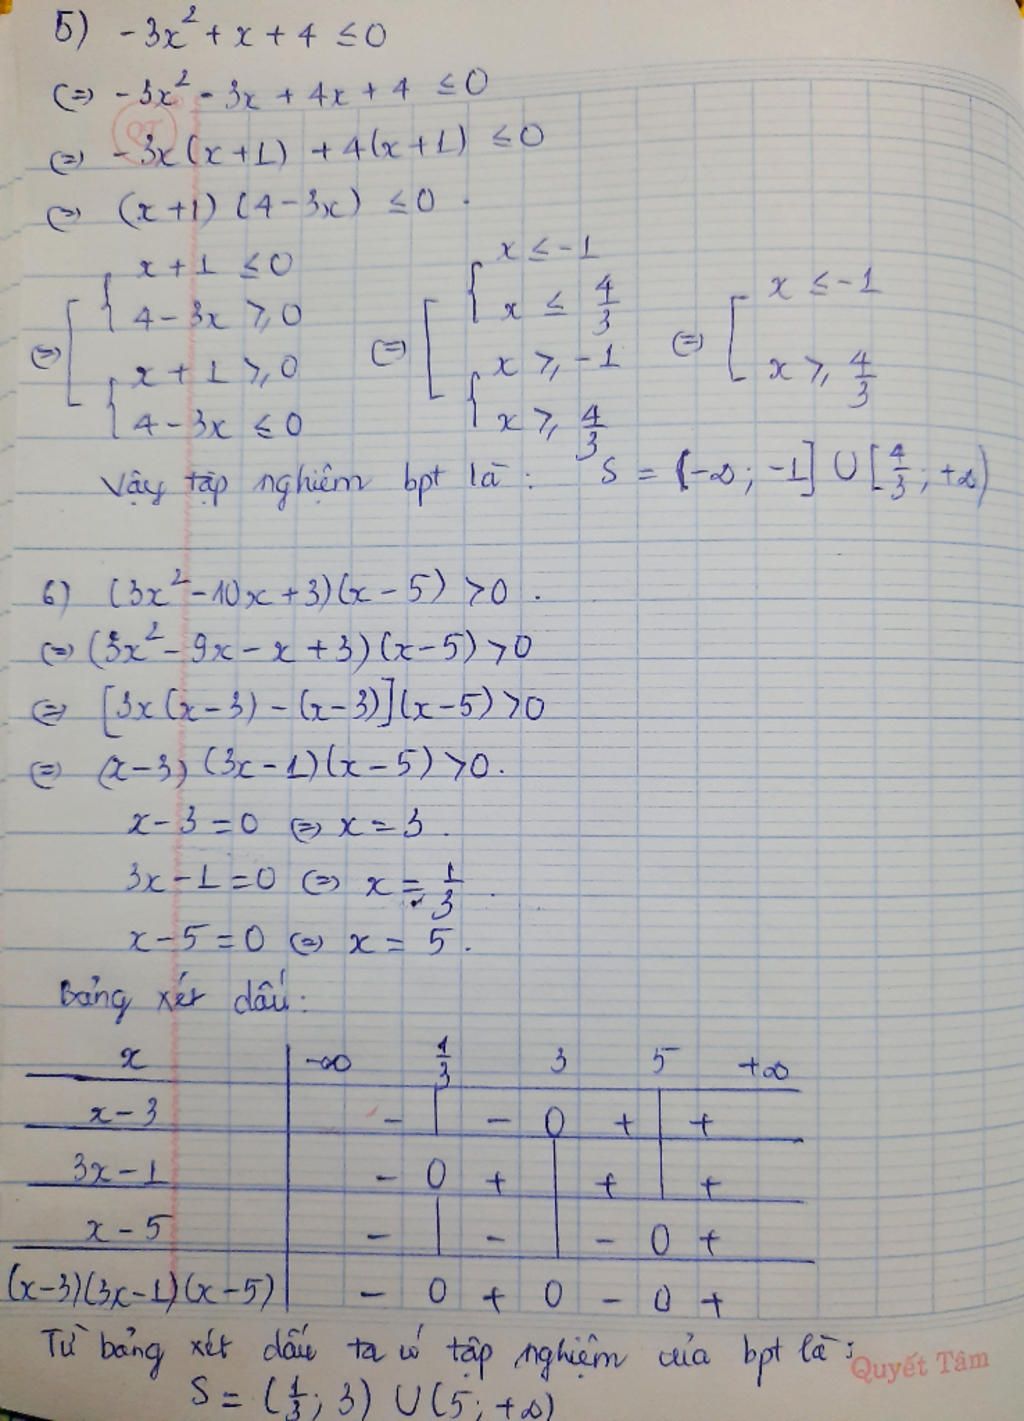 5) -3x² + x + 4 ≤ 0
(=) -3x² - 3x + 4x + 4 ≤ 0
QT
(=) -3x(x+1) + 4(x+1) ≤ 0
(=) (x+1)(4-3x) ≤ 0.
(=) [ { x+1 ≤ 0 (=) [ { x ≤ -1 (=) [ x ≤ -1
4-3x ≥ 0 x ≤ 4/3
{ x+1 ≥ 0 { x ≥ -1 x ≥ 4/3
4-3x ≤ 0 x ≥ 4/3
Vậy tập nghiệm bpt là: S = (-∞; -1] ∪ [4/3; +∞)
6) (3x² - 10x + 3)(x - 5) > 0.
(=) (3x² - 9x - x + 3)(x - 5) > 0
(=) [3x(x-3) - (x-3)](x-5) > 0
(=) (x-3)(3x-1)(x-5) > 0.
x - 3 = 0 (=) x = 3.
3x - 1 = 0 (=) x = 1/3.
x - 5 = 0 (=) x = 5.
Bảng xét dấu:
x | -∞ 1/3 3 5 +∞
x - 3 | - | - 0 + | +
3x - 1 | - 0 + | + | +
x - 5 | - | - | - 0 +
(x-3)(3x-1)(x-5) | - 0 + 0 - 0 +
Từ bảng xét dấu ta có tập nghiệm của bpt là:
Quyết Tâm
S = (1/3; 3) ∪ (5; +∞)